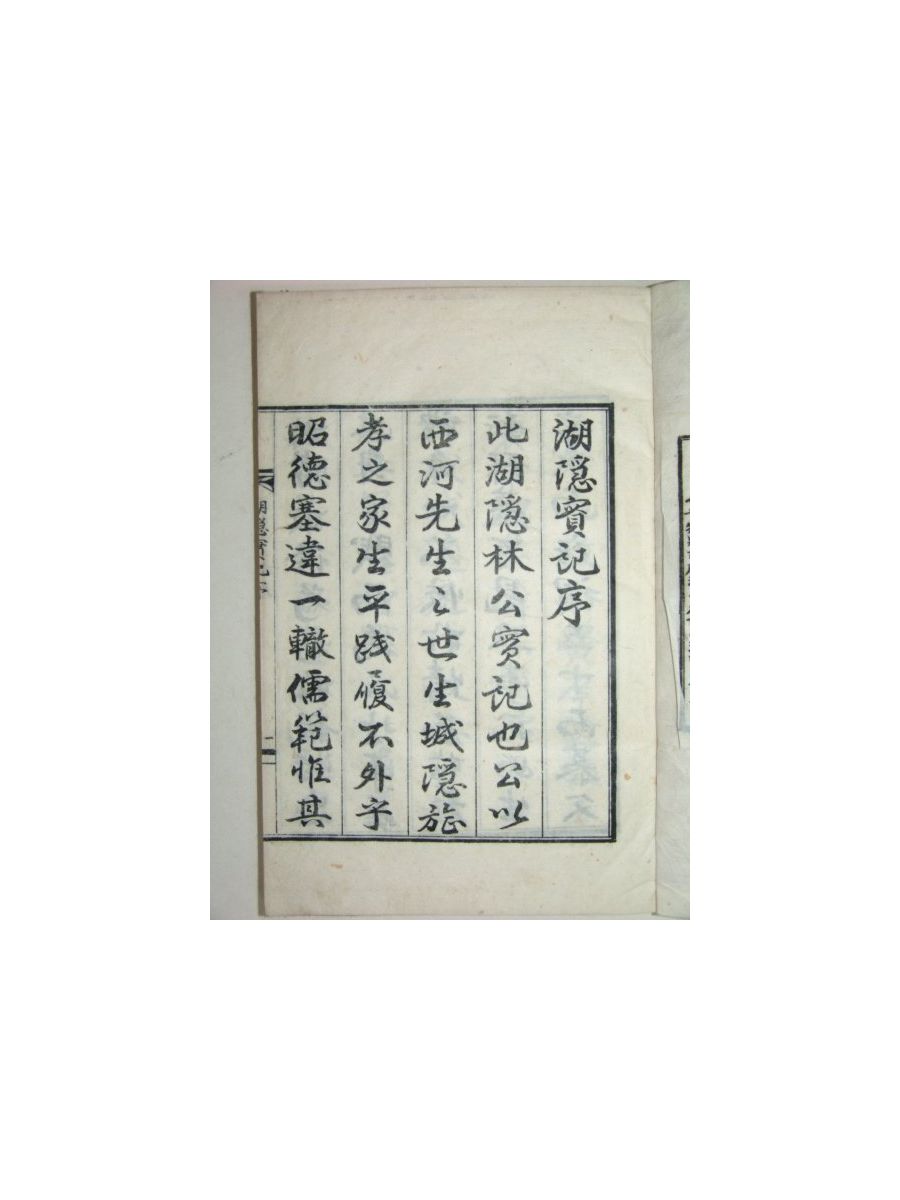 湖隱實記序
此湖隱林公實記也公以
西河先生之世生城隱旌
孝之家生平踐履不外乎
昭德塞違一轍儒範惟其
湖隱實記序